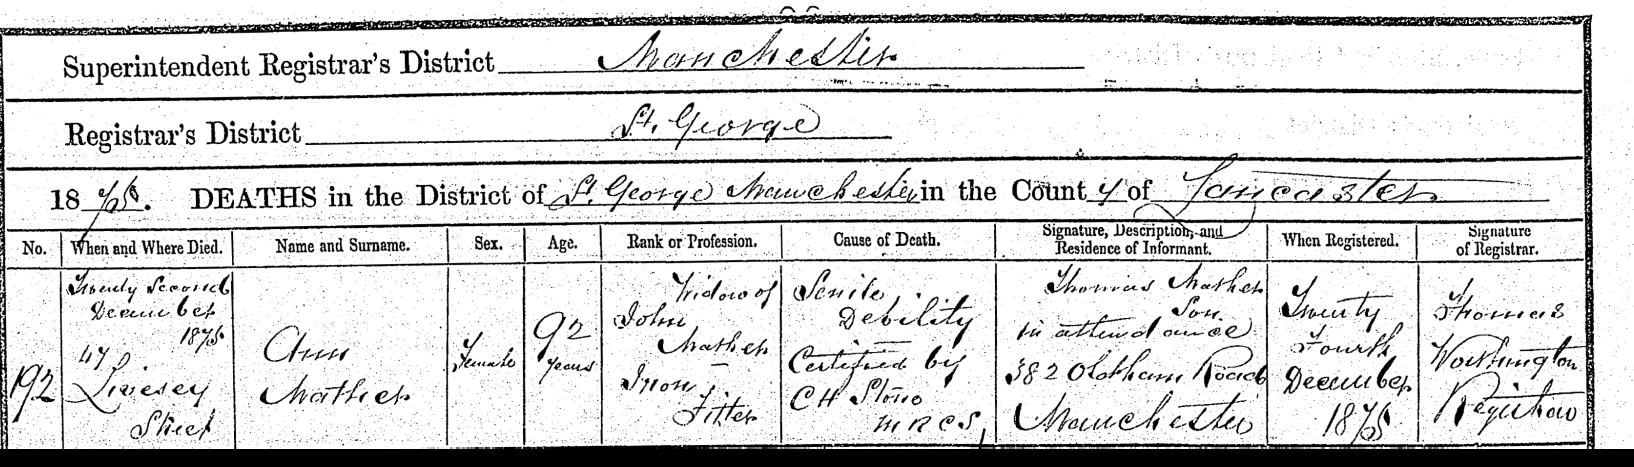 Superintendent Registrar's District Manchester
Registrar's District St. George
1875. DEATHS in the District of St. George Manchester in the County of Lancaster
No. When and Where Died. Name and Surname. Sex. Age. Rank or Profession. Cause of Death. Signature, Description, and Residence of Informant. When Registered. Signature of Registrar.
192
Twenty Second
December
1875
47
Livesey
Street
Ann
Mather
Female
92
years
Widow of
John
Mather
Iron
Fitter
Senile
Debility
Certified by
C H Stone
M R C S,
Thomas Mather
Son
in attendance
382 Oldham Road
Manchester
Twenty
Fourth
December
1875
Thomas
Worthington
Registrar